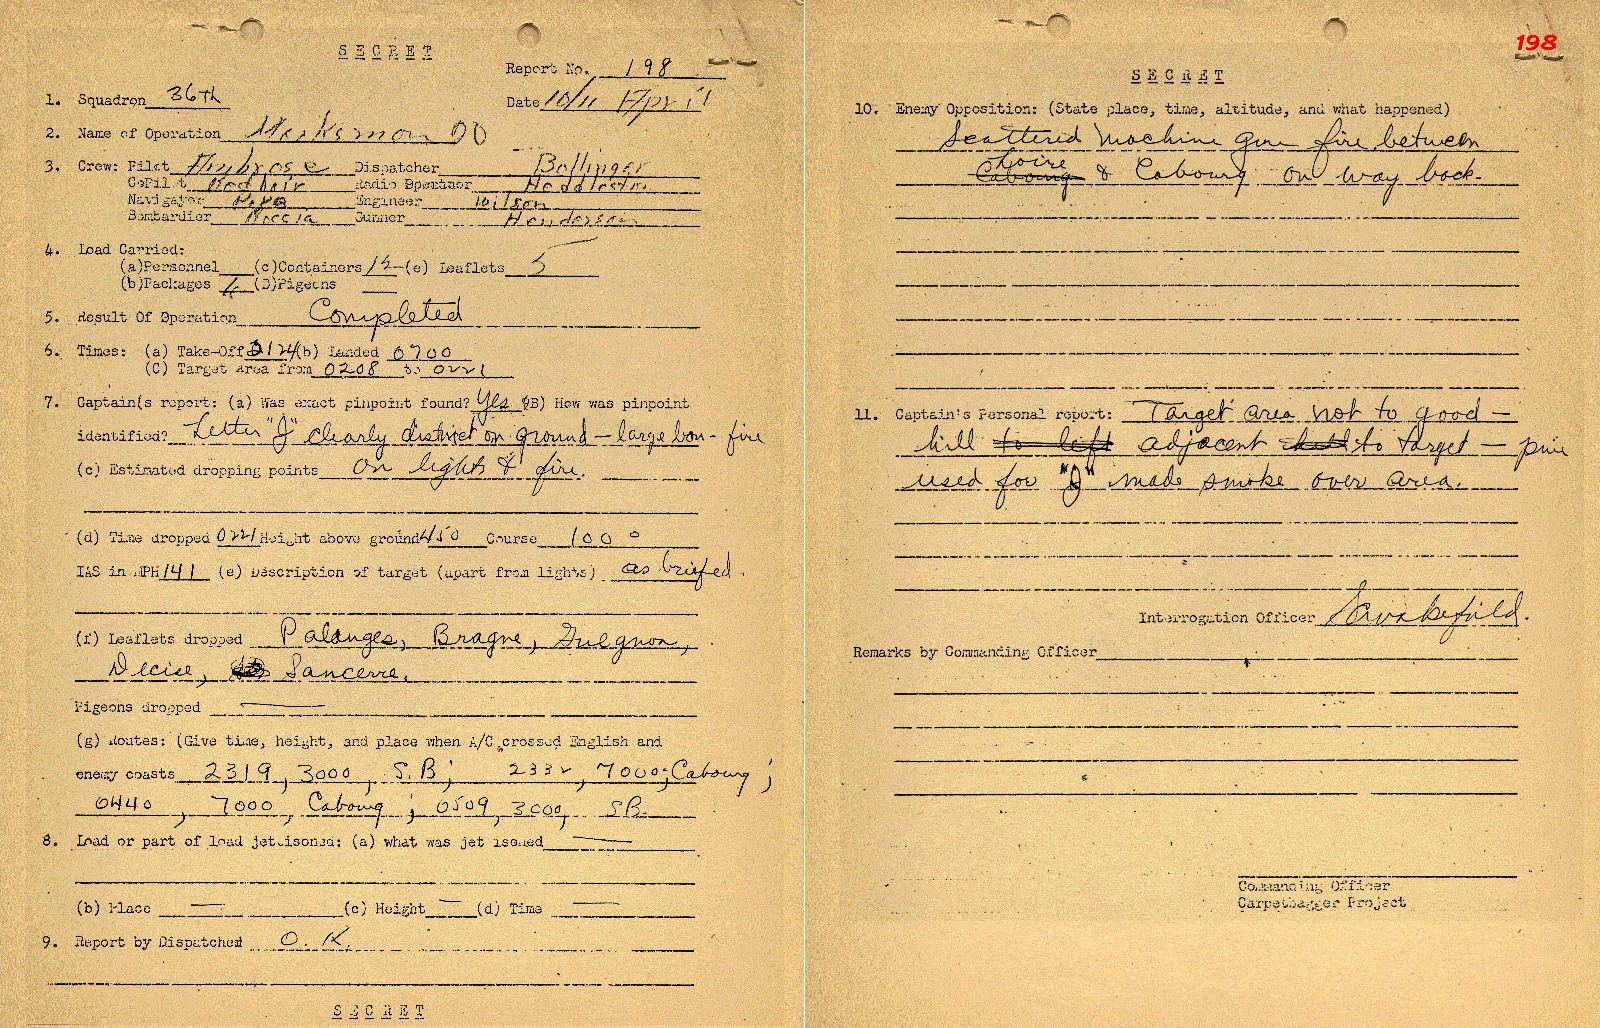 SECRET
Report No. 198
1. Squadron 36th Date 10/11
2. Name of Operation
3. Crew: Pilot Ambrose Dispatcher Bollinger
CoPilot Radio Operator
Navigator Engineer Wilson
Bombardier Gunner Henderson
4. Load Carried:
(a)Personnel (c)Containers 12 (e) Leaflets 5
(b)Packages (D)Pigeons —
5. Result Of Operation Completed
6. Times: (a) Take-Off (b) Landed 0700
(C) Target Area from 0208 to 0221
7. Captain(s report: (a) Was exact pinpoint found? Yes (B) How was pinpoint
identified? Letter "J" clearly distinct on ground — large bon-fire
(c) Estimated dropping points on lights & fire.
(d) Time dropped 0221 Height above ground 450 Course 100°
IAS in MPH 141 (e) Description of target (apart from lights) as briefed.
(f) Leaflets dropped Palanges, Bragne, Guegnon,
Decise, Sancerre.
Pigeons dropped —
(g) Routes: (Give time, height, and place when A/C crossed English and
enemy coasts 2319, 3000, S.B; 2332, 7000; Cabourg;
0440, 7000, Cabourg; 0509, 3000, SB.
8. Load or part of load jettisoned: (a) what was jettisoned —
(b) Place — (c) Height — (d) Time —
9. Report by Dispatched O.K.
SECRET
198
SECRET
10. Enemy Opposition: (State place, time, altitude, and what happened)
Scattered machine gun fire between
Loire
Cabourg & Cabourg on way back.
11. Captain's Personal report: Target area not to good —
hill to left adjacent to target —
used for "J" made smoke over area.
Interrogation Officer
Remarks by Commanding Officer
Commanding Officer
Carpetbagger Project